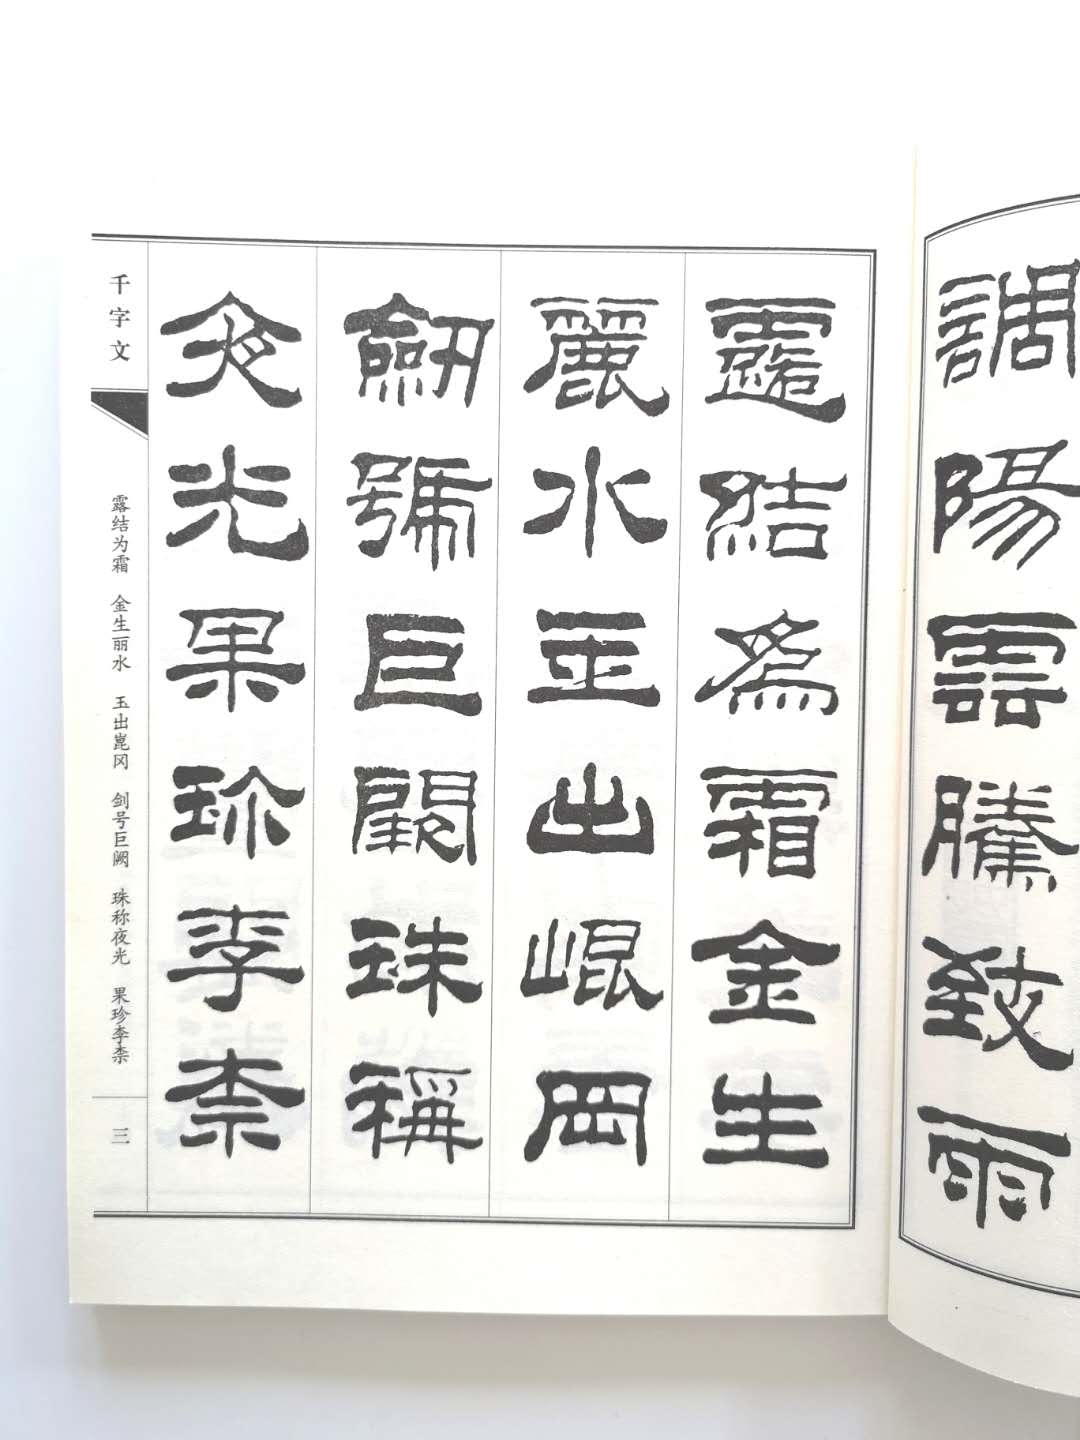 調陽雲騰致雨
露結為霜金生
麗水玉出崐岡
劒號巨闕珠稱
夜光果珍李柰
千字文
露结为霜 金生丽水 玉出崑冈 剑号巨阙 珠称夜光 果珍李柰
三